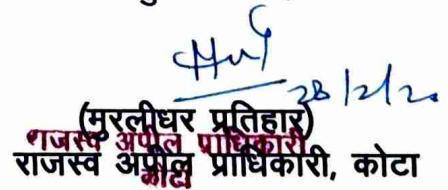 28/2/20
(मुरलीधर प्रतिहार)
राजस्व अपील प्राधिकारी
राजस्व अपील प्राधिकारी, कोटा
कोटा